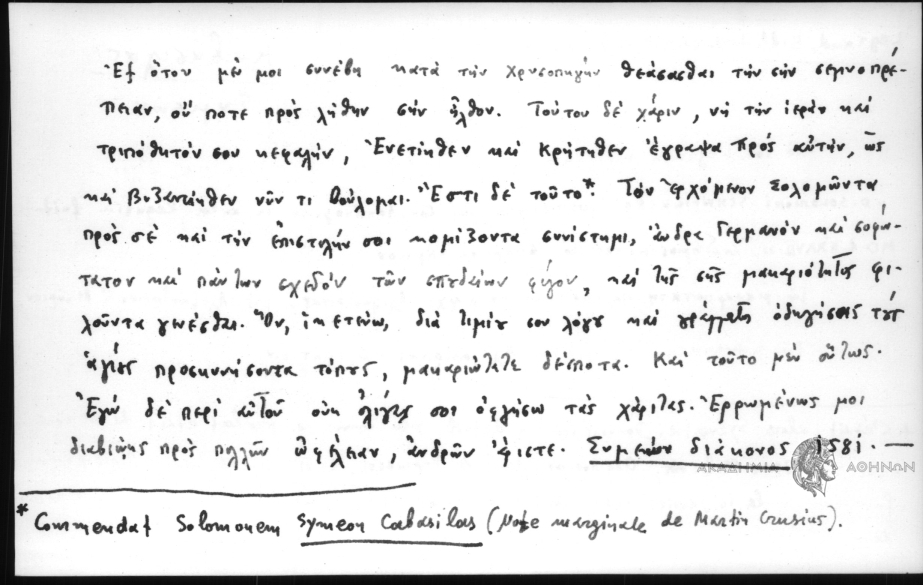 Ἐξ ὅτου μέν μοι συνέβη κατὰ τὴν Χρυσοπηγὴν θεάσασθαι τὴν σὴν σεμνοπρέ-
πειαν, οὔ ποτε πρὸς λήθην σὴν ἦλθον. Τούτου δὲ χάριν, νὴ τὴν ἱερὰν καὶ
τριπόθητόν σου κεφαλήν, Ἐνετίηθεν καὶ Κρήτηθεν ἔγραψα πρὸς αὐτήν, ὡς
καὶ Βυζαντίηθεν νῦν τι βούλομαι. Ἔστι δὲ τοῦτο* Τὸν ἐρχόμενον Σολομῶντα
πρός σὲ καὶ τὴν ἐπιστολήν σοι κομίζοντα συνίστημι, ἄνδρα Γερμανὸν καὶ σοφώ-
τατον καὶ πάντων σχεδὸν τῶν σπουδαίων φίλον, καὶ τῆς σῆς μακαριότητος φι-
λοῦντα γενέσθαι. Ὅν, ἱκετεύω, διὰ τιμίου σου λόγου καὶ γράμματος ὁδηγήσεις τοὺς
ἁγίους προσκυνήσοντα τόπους, μακαριώτατε δέσποτα. Καὶ τοῦτο μὲν οὕτως.
Ἐγὼ δὲ περὶ αὐτοῦ οὐκ ὀλίγας σοι ὀφλήσω τὰς χάριτας. Ἐρρωμένως μοι
διαβιώῃς πρὸς πολλῶν ὠφέλειαν, ἀνδρῶν ἄριστε. Συμεὼν διάκονος 1581. —
ΑΚΑΔΗΜΙΑ ΑΘΗΝΩΝ
* Commendat Solomonem Symeon Cabasilas (Note marginale de Martin Crusius).